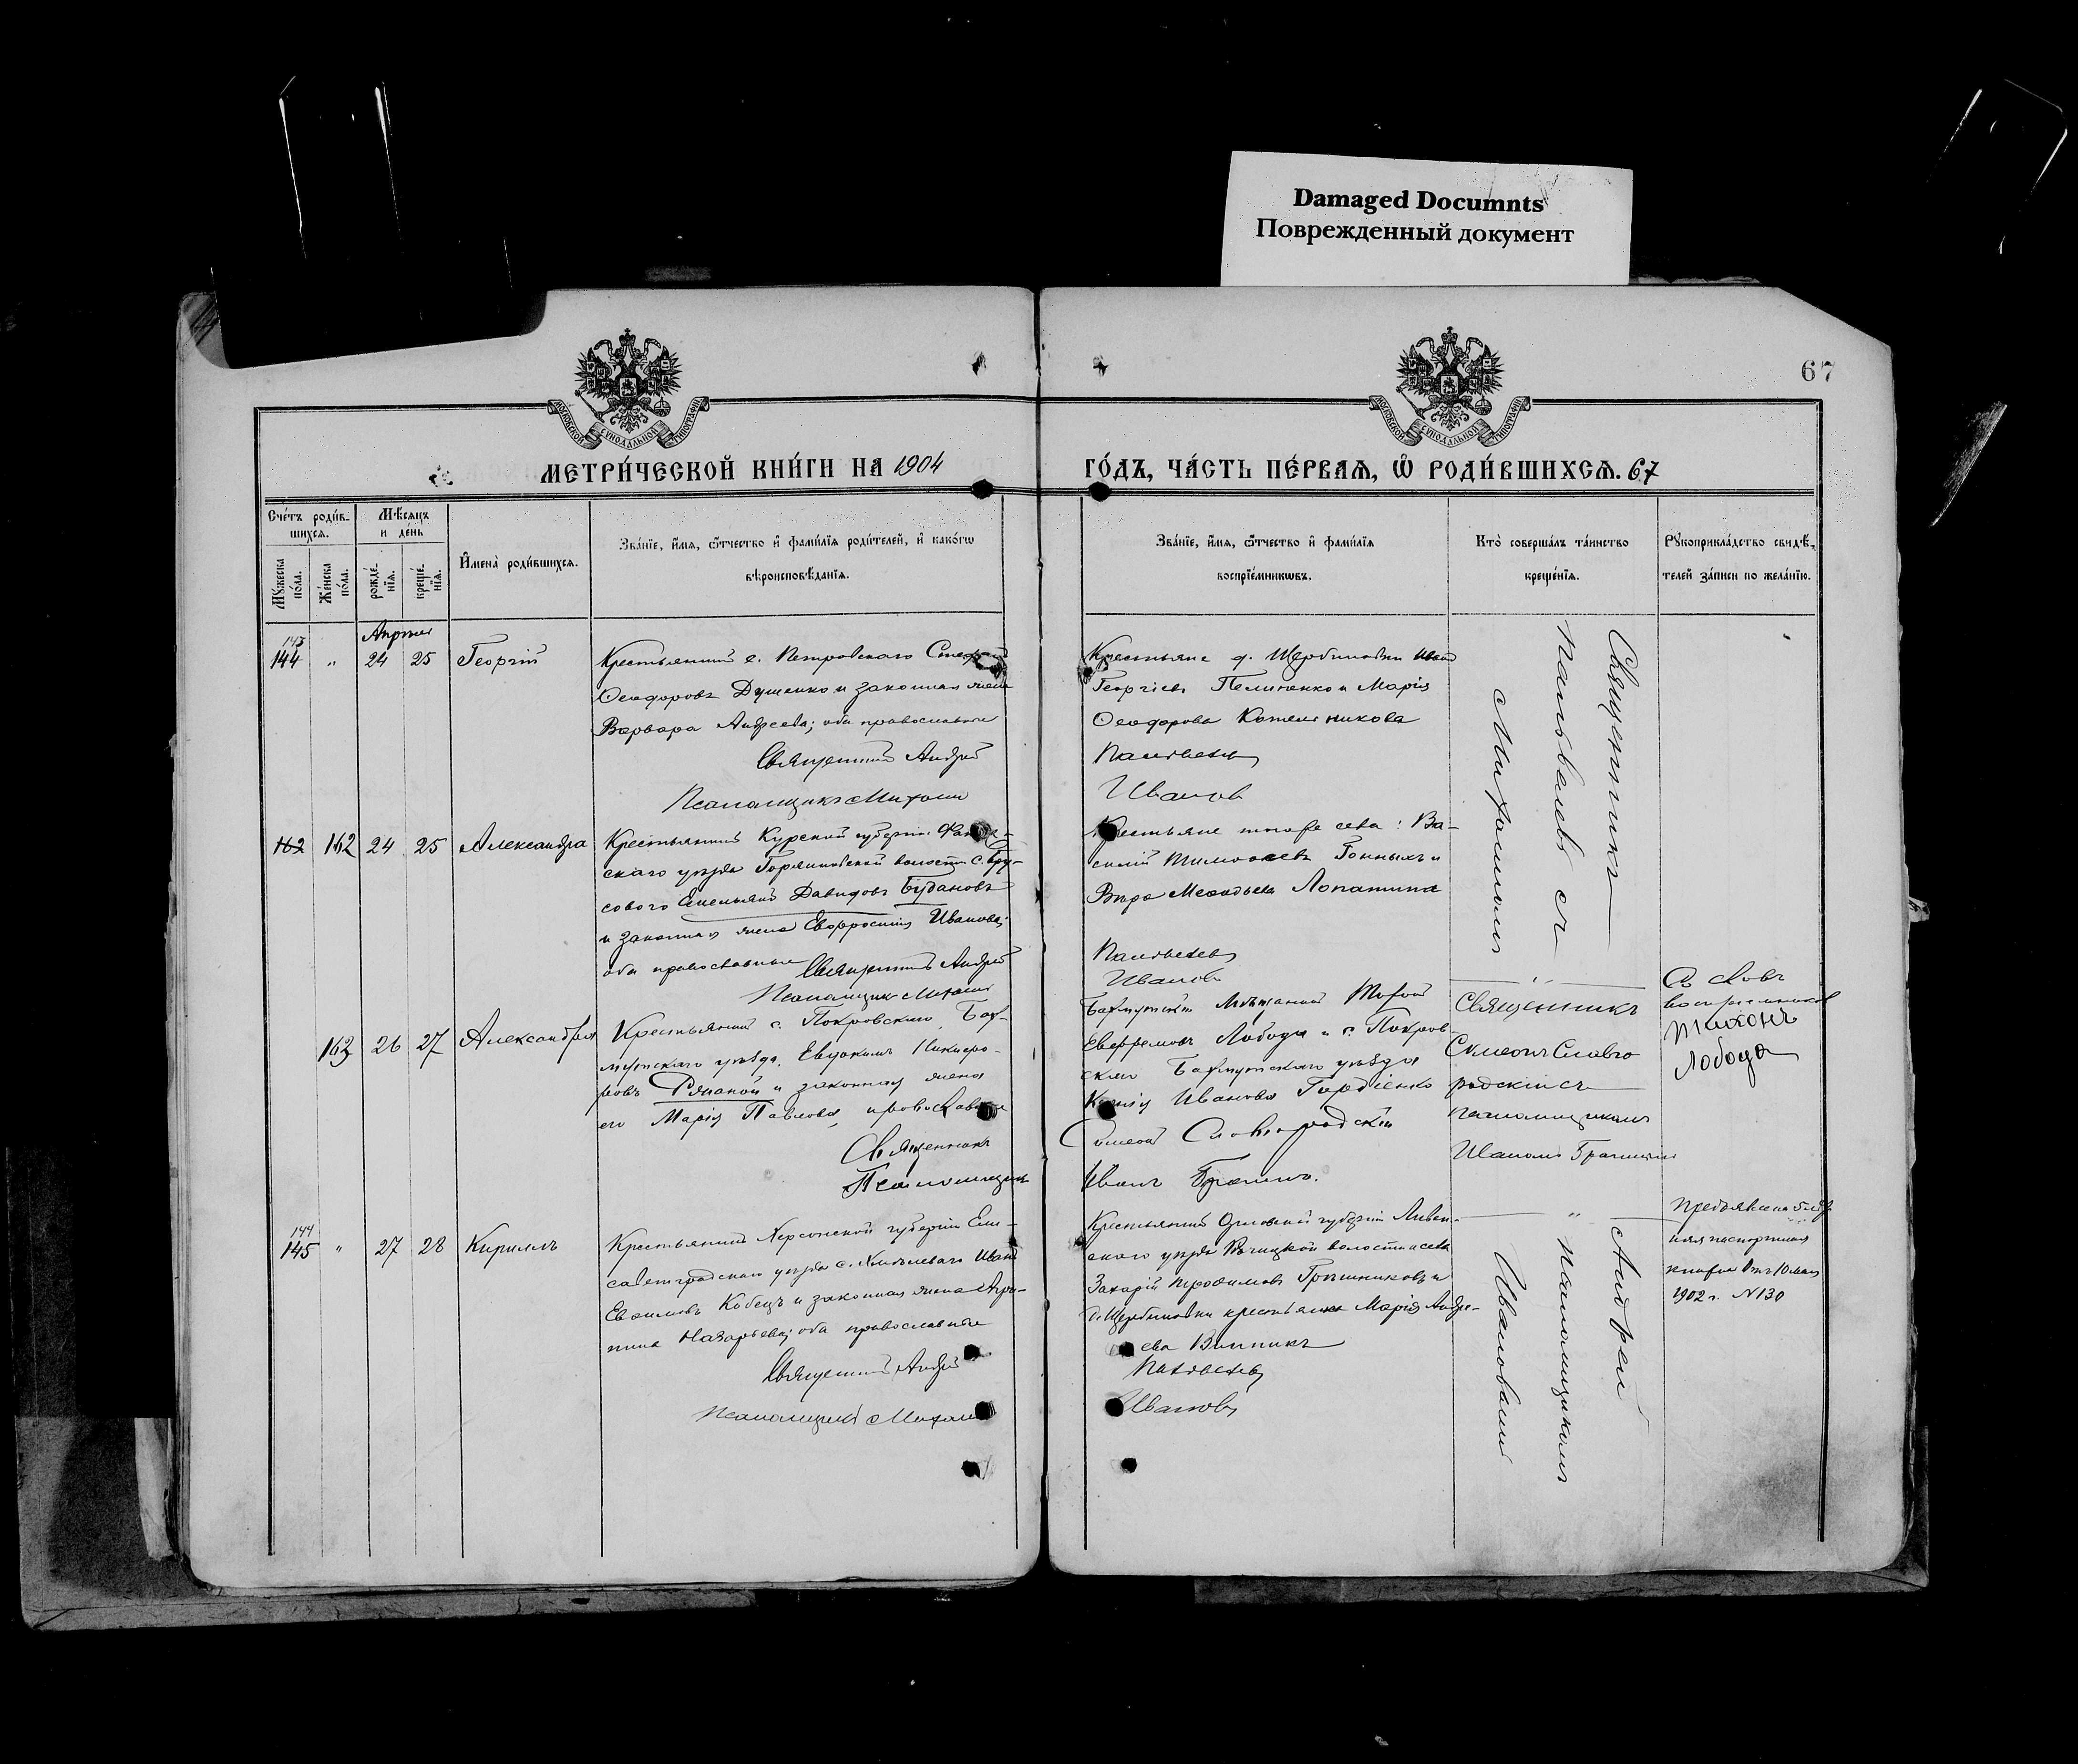 Damaged Documnts
Поврежденный документ
67
МОСКОВСКОЙ СѴНОДАЛЬНОЙ ТИПОГРАФІИ
МОСКОВСКОЙ СѴНОДАЛЬНОЙ ТИПОГРАФІИ
МЕТРИ́ЧЕСКОЙ КНИ́ГИ НА 1904
ГО́ДЪ, ЧА́СТЬ ПЕ́РВАѦ, Ѡ҆ РОДИ́ВШИХСѦ. 67
Сче́тъ роди́в-
шихсѧ.
Мꙋ́жеска по́ла.
Же́нска по́ла.
Мѣ́сѧцъ
и де́нь
рожде́-
нїѧ.
креще́-
нїѧ.
И҆мена̀ роди́вшихсѧ.
Зва́нїе, и҆́мѧ, ѻ҆́тчество и҆ фами́лїѧ роди́телей, и҆ како́гѡ
вѣроисповѣ́данїѧ.
Зва́нїе, и҆́мѧ, ѻ҆́тчество и҆ фами́лїѧ
воспрїе́мникѡвъ.
Кто̀ соверша́лъ та́инство
креще́нїѧ.
Рꙋкоприкла́дство свидѣ́-
телей за́писи по жела́нїю.
Апреля
143
144 " 24 25 Георгій
Крестьянинъ с. Петровскаго Стефанъ
Ѳеодоровъ Душенко и законная жена
Варвара Андреева; оба православные
Священникъ Андрей
Псаломщикъ Михаилъ
Крестьяне д. Щербиновки Иванъ
Георгіевъ Пелипенко и Марія
Ѳеодорова Котельникова
Паньевъ
Иванов
Священникъ
Михаиломъ
162 162 24 25 Александра
Крестьянинъ Курской губерніи
скаго уѣзда Горяиновской волости с. Бру-
сового Емельянъ Давидовъ Будановъ
и законная жена Евфросинія Иванова;
оба православные Священникъ Андрей
Псаломщикъ Михаилъ
Крестьяне тогоже села: Ва-
силій Тимоѳеевъ Гонныхъ и
Вѣра Меѳодьева Лопатина
Иванов
163 26 27 Александра
Крестьянинъ с. Покровскаго, Бах-
мутскаго уѣзда, Евдокимъ Никифо-
ровъ Рѣпаной и законная жена
его Марія Павлова, православные
Священникъ
Псаломщикъ
Бахмутскій Мѣщанинъ Тихонъ
Евфремовъ Лобода и с. Покров-
скаго Бахмутскаго уѣзда
Ксенія Иванова Гордіенко
Симеонъ Славгородскій
Иванъ Брагинъ.
Священникъ
Симеонъ Славго
родскій съ
псаломщикомъ
Иваномъ Брагинымъ
Со словъ
воспріемников
Тихонъ
Лобода
144
145 " 27 28 Кириллъ
Крестьянинъ Херсонской губерніи Ели-
саветградскаго уѣзда с. Хмѣлеваго Иванъ
Евѳимовъ Кобецъ и законная жена Агри-
пина Назарьева; оба православные
Священникъ Андрей
Псаломщикъ Михаилъ
Крестьянинъ Орловской губерніи Ливен-
скаго уѣзда Рѣчицкой волости и села
Захарій Трофимовъ Грѣшниковъ и
д. Щербиновки крестьянка Марія Андре-
ева Винникъ
Ивановъ
"
Андрей
псаломщикомъ
Ивановымъ
Предъявлена
паспортная
книжка отъ 10 мая
1902 г. №130